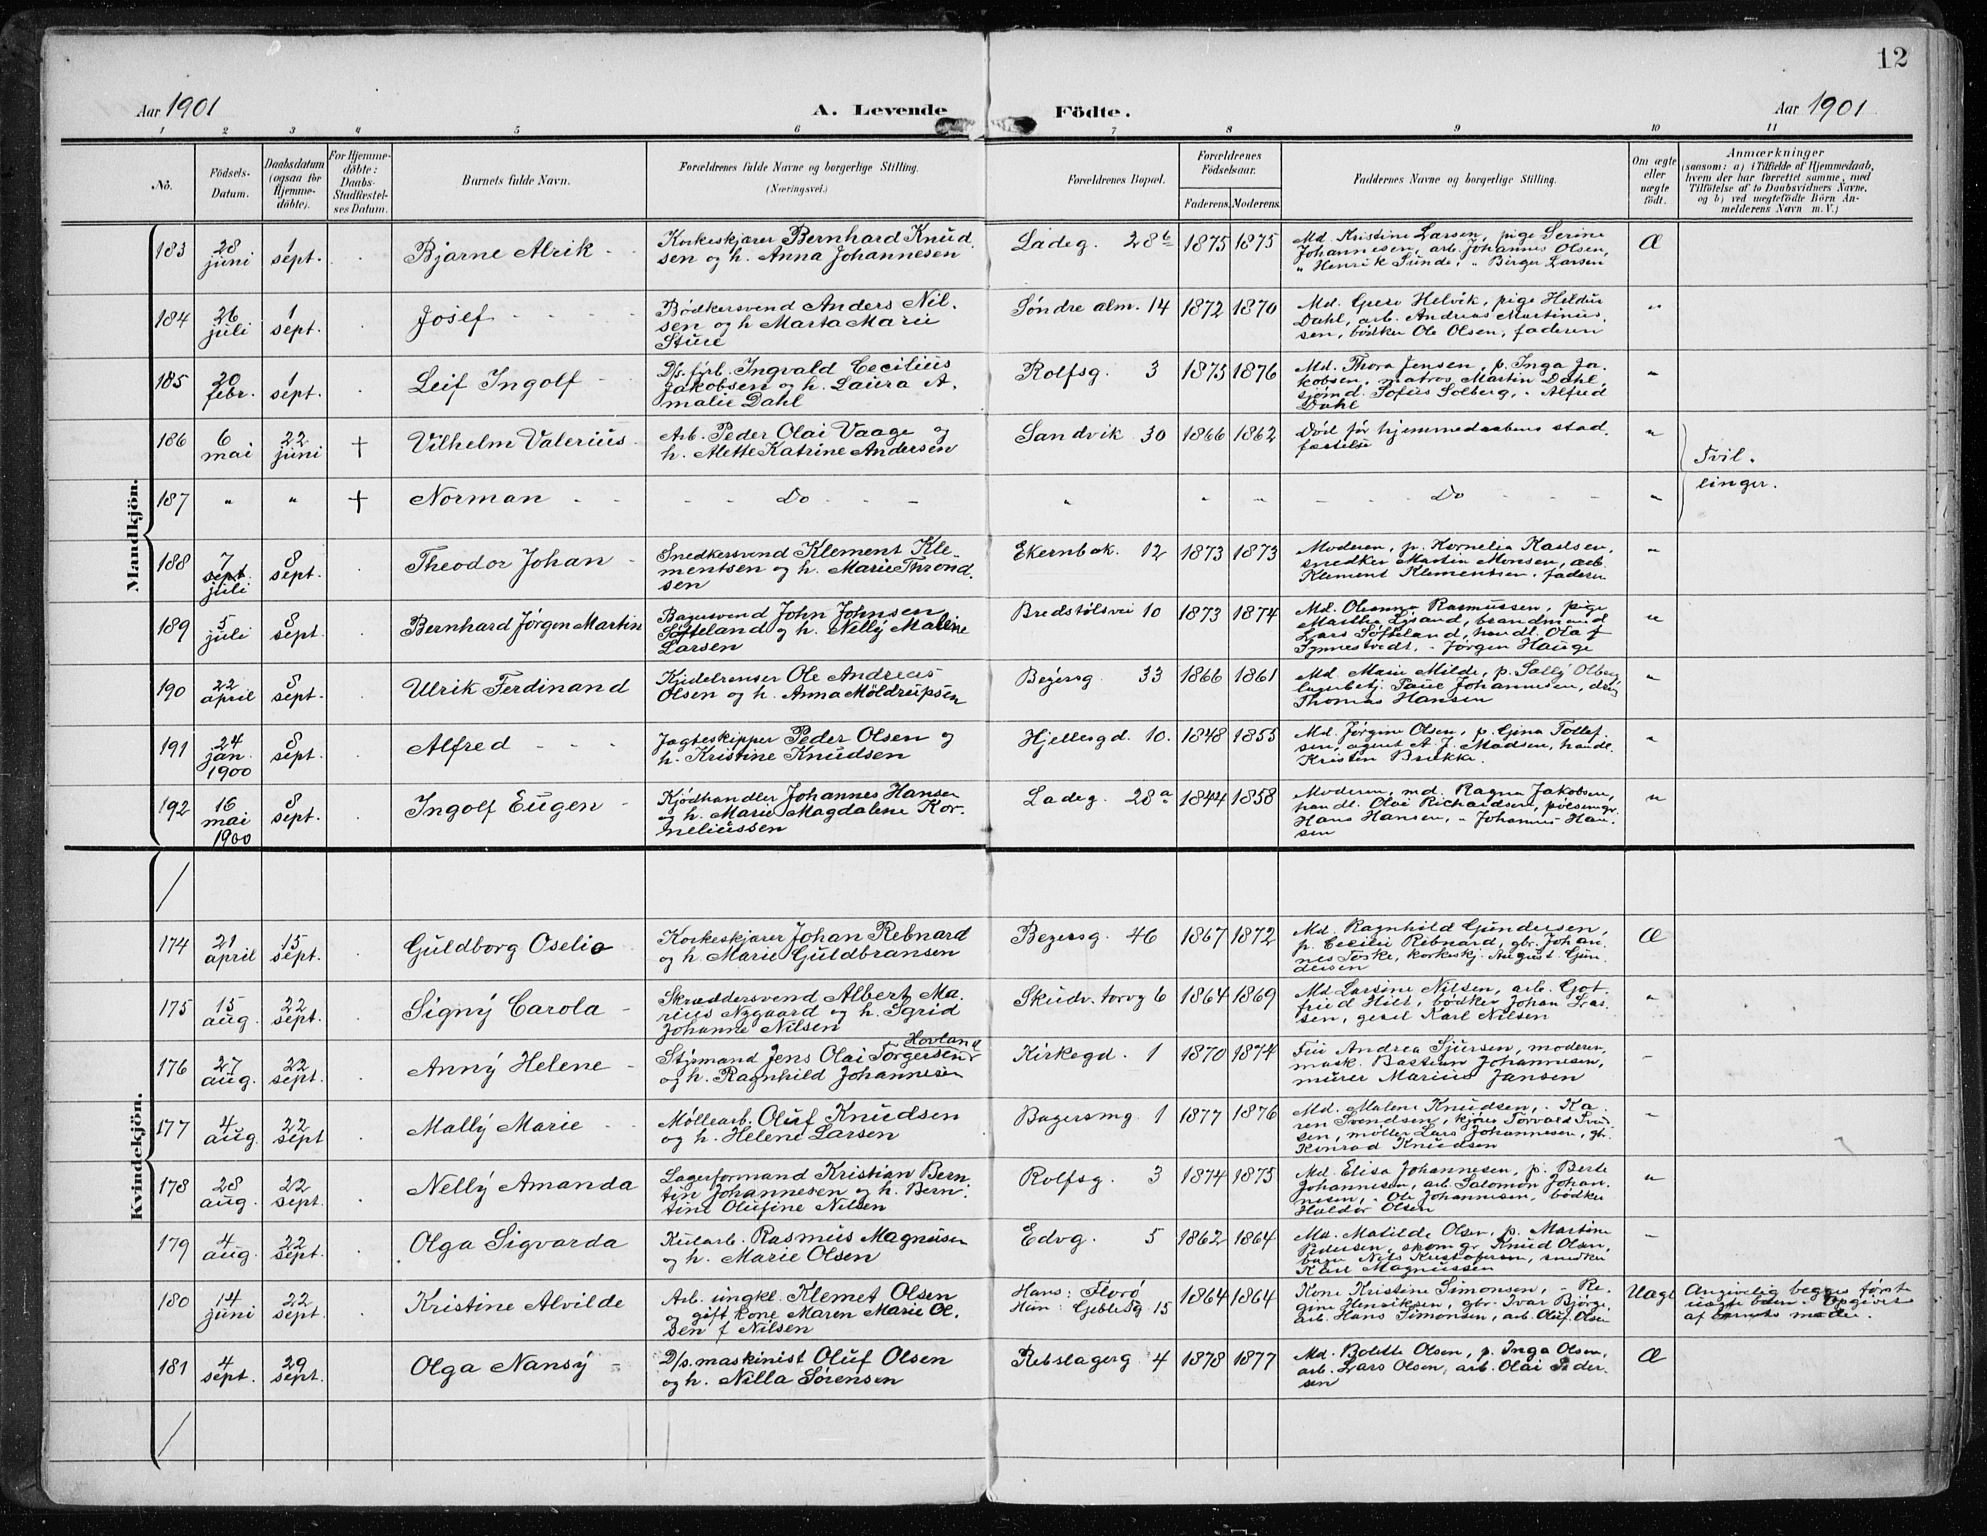 12
Aar 1901
A. Levende Födte.
Aar 1901
1 2 3 4 5 6 7 8 9 10 11
No.
Födsels-
Datum.
Daabsdatum
(ogsaa for
Hjemme-
döbte).
For Hjemme-
döbte:
Daabs-
Stadfæstel-
ses Datum.
Barnets fulde Navn.
Forældrenes fulde Navne og borgerlige Stilling.
(Næringsvei.)
Forældrenes Bopæl.
Forældrenes
Födselsaar.
Faderens. Moderens.
Faddernes Navne og borgerlige Stilling.
Om ægte
eller
uægte
födt.
Anmærkninger
(saasom: a) i Tilfælde af Hjemmedaab,
hvem der har forrettet samme, med
Tilföielse af to Daabsvidners Navne,
og b) ved uægtefödte Börn An-
melderens Navn m. V.)
Mandkjön.
183 28 juni 1 sept. Bjarne Alrik
Korkeskjærer Bernhard Knud
sen og h. Anna Johannesen
Ladeg. 28b 1875 1875
Md. Kristine Larsen, pige Serine
Johannesen, arb. Johannes Olsen,
" Henrik Sunde, " Birger Larsen
Æ
184 26 juli 1 sept. Josef
Bødkersvend Anders Nil-
sen og h Marta Marie
Sture
Søndre alm. 14 1872 1870
Md. Grese Helvik, pige Heldur
Dahl, arb. Andreas Martinus-
sen, bødker Ole Olsen, faderen
"
185 20 febr. 1 sept. Leif Ingolf
D/s. fyrb. Ingvald Cecilius
Jakobsen og h. Laura A-
malie Dahl
Rolfsg. 3 1875 1876
Md. Thora Jensen, p. Inga Ja-
kobsen, matros Martin Dahl,
sjømd. Sofus Solberg, " Alfred
Dahl
"
186 6 mai 22 juni † Vilhelm Valerius
Arb. Peder Olai Vaage og
h. Alette Katrine Andersen
Sandvik 30 1866 1862
Død før hjemmedaabens stad-
fæstelse
"
Tvil-
linger.
187 " " † Norman
Do " " " Do "
188 7 sept. juli 8 sept. Theodor Johan
Snedkersvend Klement Kle-
mentsen og h. Marie Thrond-
sen
Ekernbak. 12 1873 1873
Moderen, p. Kornelia Karlsen,
snedker Martin Monsen, arb.
Klement Klementsen, faderen
"
189 5 juli 8 sept. Bernhard Jørgen Martin
Bagersvend John Johnsen
Softeland og h. Nelly Malene
Larsen
Bredstølsvei 10 1873 1874
Md. Oleanna Rasmussen, pige
Martha Lysand, brandmand
Lars Softeland, handl. Olaf
Synnestvedt, " Jørgen Hauge
"
190 22 april 8 sept. Ulrik Ferdinand
Kjedelrenser Ole Andreas
Olsen og h. Anna Moldrupsen
Beyersg. 33 1866 1861
Md. Marie Milde, p. Sally Olberg
lagerbetj. Paul Johannesen,
Thomas Hansen
"
191 24 jan. 1900 8 sept. Alfred
Jagteskipper Peder Olsen og
h. Kristine Knudsen
Hjellesgd. 10. 1848 1855
Md. Jørgin Olsen, p. Gina Tollef-
sen, agent A. J. Madsen, handl.
Kristen Brekke.
"
192 16 mai 1900 8 sept. Ingolf Eugen
Kjødhandler Johannes Hansen
og h. Marie Magdalene Kor-
neliussen
Ladeg. 28a 1844 1858
Moderen, md. Ragna Jakobsen,
handl. Olai Richardsen, pølsemgr.
Hans Hansen, " Johannes Han-
sen
"
Kvindekjön.
174 21 april 15 sept. Guldborg Oselie
Korkeskjærer Johan Rebnard
og h. Marie Guldbransen
Beyersg. 46 1867 1872
Md. Ragnhild Gundersen,
p. Cecilie Rebnard, gbr. Johan-
nes Toske, korkeskj. August Gun-
dersen
Æ
175 15 aug. 22 sept. Signy Carola
Skræddersvend Albert Ma-
rius Nygaard og h. Igrid
Johanne Nilsen
Skudv. torvg 6 1864 1869
Md Larsine Nilsen, arb. Got-
fried Hilt, bødker Johan Lar-
sen, gesel Karl Nilsen
"
176 27 aug. 22 sept. Anny Helene
Hovland
Styrmand Jens Olai Torgersen
og h. Ragnhild Johannesen
Kirkegd. 1 1870 1874
Fru Andrea Sjursen, moderen,
mask. Bastian Johannesen,
murer Marius Jansen
"
177 4 aug. 22 sept Mally Marie
Møllearb. Oluf Knudsen
og h. Helene Larsen
Bagersmg. 1 1877 1876
Md. Malene Knudsen, " Ka-
ren Svendsen, kjører Torvald Svend-
sen, møller Lars Johannesen, gbr.
Konrad Knudsen
"
178 28 aug. 22 sept. Nelly Amanda
Lagerformand Kristian Bern-
tin Johannesen og h. Bern-
tine Olufine Nilsen
Rolfsg. 3 1874 1875
Md. Elisa Johannesen, p. Berte
Johannesen, arb. Salomon Johan-
nesen, " Ole Johannesen, bødker
Haldor Olsen
"
179 4 aug. 22 sept. Olga Sigvarda
Kularb. Rasmus Magnusen
og h. Marie Olsen
Edvg. 5 1862 1864
Md. Matilde Olsen, p. Martine
Pedersen, skomgr. Knud Olsen,
bager Nils Kristofersen, snedker
Karl Magnussen
"
180 14 juni 22 sept. Kristine Alvilde
Arb. ungkl. Klemet Olsen
og gift kone Maren Marie Ol-
sen f Nilsen
Hans: Florø
Hun: Geblesg. 15 1864 1864
Kone Kristine Simonsen, " Re-
gine Henriksen, gbr. Ivar Bjørge,
arb. Hans Simonsen, arb. Oluf Olsen
Uægt
Angivelig begges første
uægte barn. Opgivet
af barnets moder.
181 4 sept. 29 sept. Olga Nansy
D/s. maskinist Oluf Olsen
og h. Nilla Sørensen
Rebslagerg. 4 1878 1877
Md. Bolette Olsen, p. Inga Olsen,
arb. Lars Olsen, arb. Olai Peder-
sen
Æ